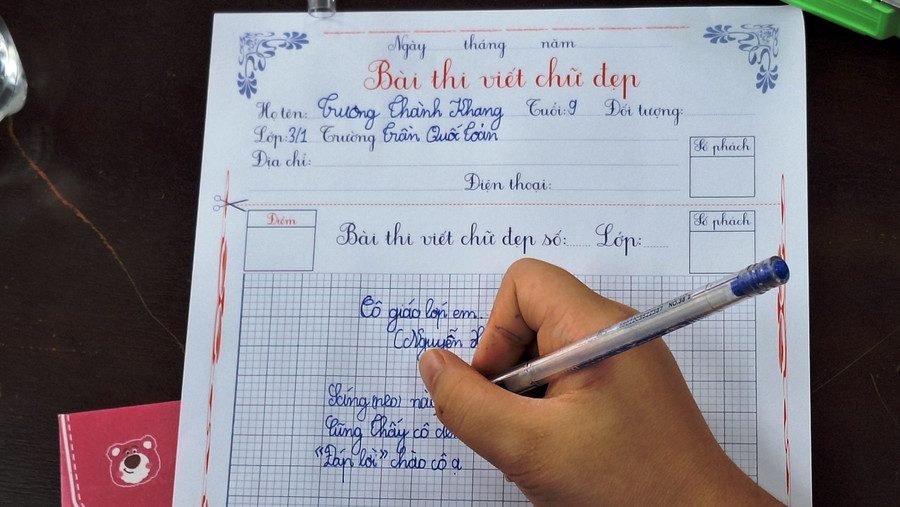 Ngày tháng năm
Bài thi viết chữ đẹp
Họ tên: Trương Thành Khang Tuổi: 9 Đối tượng:
Lớp: 3/1 Trường Trần Quốc Toản
Địa chỉ:
Số phách
Điện thoại:
Điểm
Bài thi viết chữ đẹp số: Lớp:
Số phách
Cô giáo lớp em
(Nguyễn
Sáng nào
Cũng thấy cô
"Đáp lời" chào cô ạ